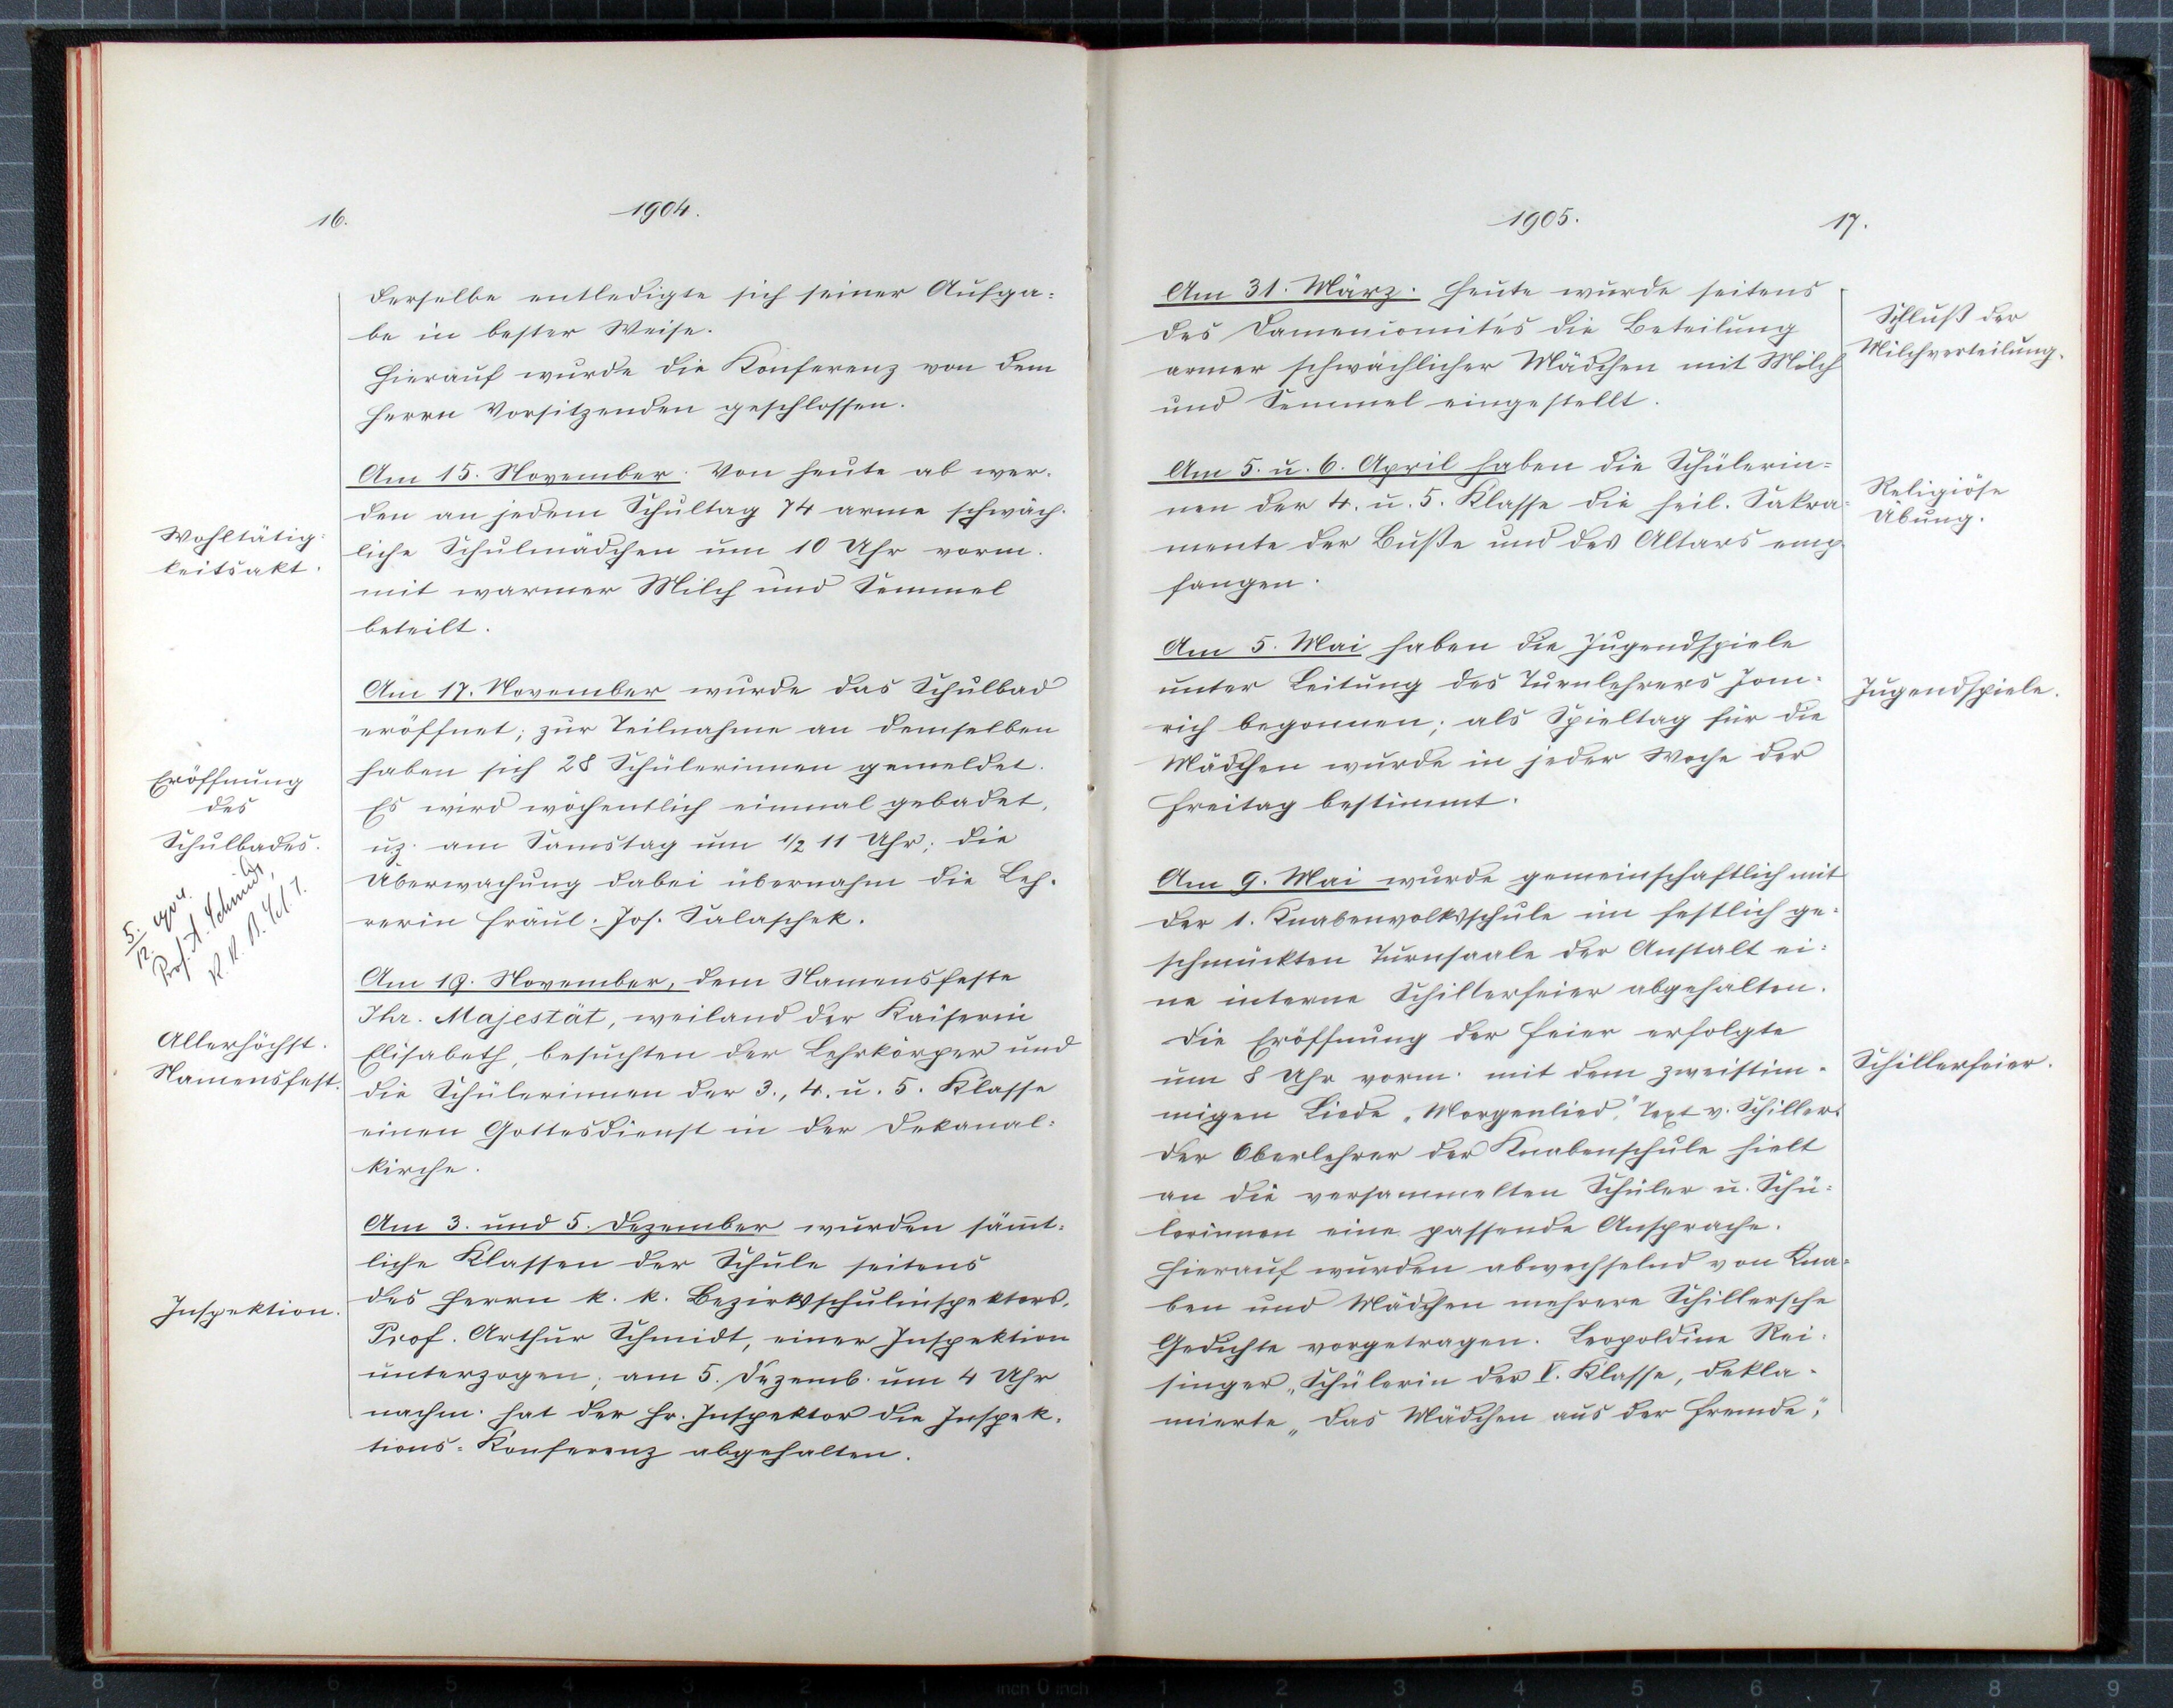 16.
1904.
derselbe entledigte sich seiner Aufga=
be in bester Weise.
Hierauf wurde die Konferenz von dem
Herrn Vorsitzenden geschlossen.
Am 15. November. Von heute ab wer-
den an jedem Schultag 74 arme schwäch-
liche Schulmädchen um 10 Uhr vorm.
mit warmer Milch und Semmel
beteilt.
Wohltätig=
keitsakt.
Am 17. November wurde das Schulbad
eröffnet; zur Teilnahme an demselben
haben sich 28 Schülerinnen gemeldet.
Es wird wöchentlich einmal gebadet,
uz. am Samstag um 1/2 11 Uhr; die
Überwachung dabei übernahm die Leh-
rerin Fräul. Jos. Salaschek.
Eröffnung
des
Schulbades.
5./12. 904.
Prof. A. Schmidt,
K. K. B. Sch. I.
Am 19. November, dem Namensfeste
Ihr. Majestät, weiland der Kaiserin
Elisabeth, besuchten der Lehrkörper und
die Schülerinnen der 3., 4. u. 5. Klasse
einen Gottesdienst in der Dekanal=
kirche.
Allerhöchst.
Namensfest.
Am 3. und 5. Dezember wurden sämt-
liche Klassen der Schule seitens
des Herrn k. k. Bezirksschulinspektors,
Prof. Arthur Schmidt, einer Inspektion
unterzogen; am 5. Dezemb. um 4 Uhr
nachm. hat der Hr. Inspektor die Inspek-
tions=Konferenz abgehalten.
Inspektion.
1905.
17.
Am 31. März. Heute wurde seitens
des Damencomités die Beteilung
armer schwächlicher Mädchen mit Milch
und Semmel eingestellt.
Schluß der
Milchverteilung.
Am 5. u. 6. April haben die Schülerin=
nen der 4. u. 5. Klasse die heil. Sakra-
mente der Buße und des Altars emp-
fangen.
Religiöse
Übung.
Am 5. Mai haben die Jugendspiele
unter Leitung des Turnlehrers Jom-
rich begonnen; als Spieltag für die
Mädchen wurde in jeder Woche der
Freitag bestimmt.
Jugendspiele.
Am 9. Mai wurde gemeinschaftlich mit
der 1. Knabenvolksschule im festlich ge-
schmückten Turnsaale der Anstalt ei-
ne interne Schillerfeier abgehalten.
Die Eröffnung der Feier erfolgte
um 8 Uhr vorm. mit dem zweistim-
migen Liede „Morgenlied," Text v. Schiller.
Der Oberlehrer der Knabenschule hielt
an die versammelten Schüler u. Schü-
lerinnen eine passende Ansprache.
Hierauf wurden abwechselnd von Kna-
ben und Mädchen mehrere Schillersche
Gedichte vorgetragen. Leopoldine Rei-
singer, Schülerin der V. Klasse, dekla-
mierte „Das Mädchen aus der Fremde",
Schillerfeier.
8 7 6 5 4 3 2 1 inch 0 inch 1 2 3 4 5 6 7 8 9